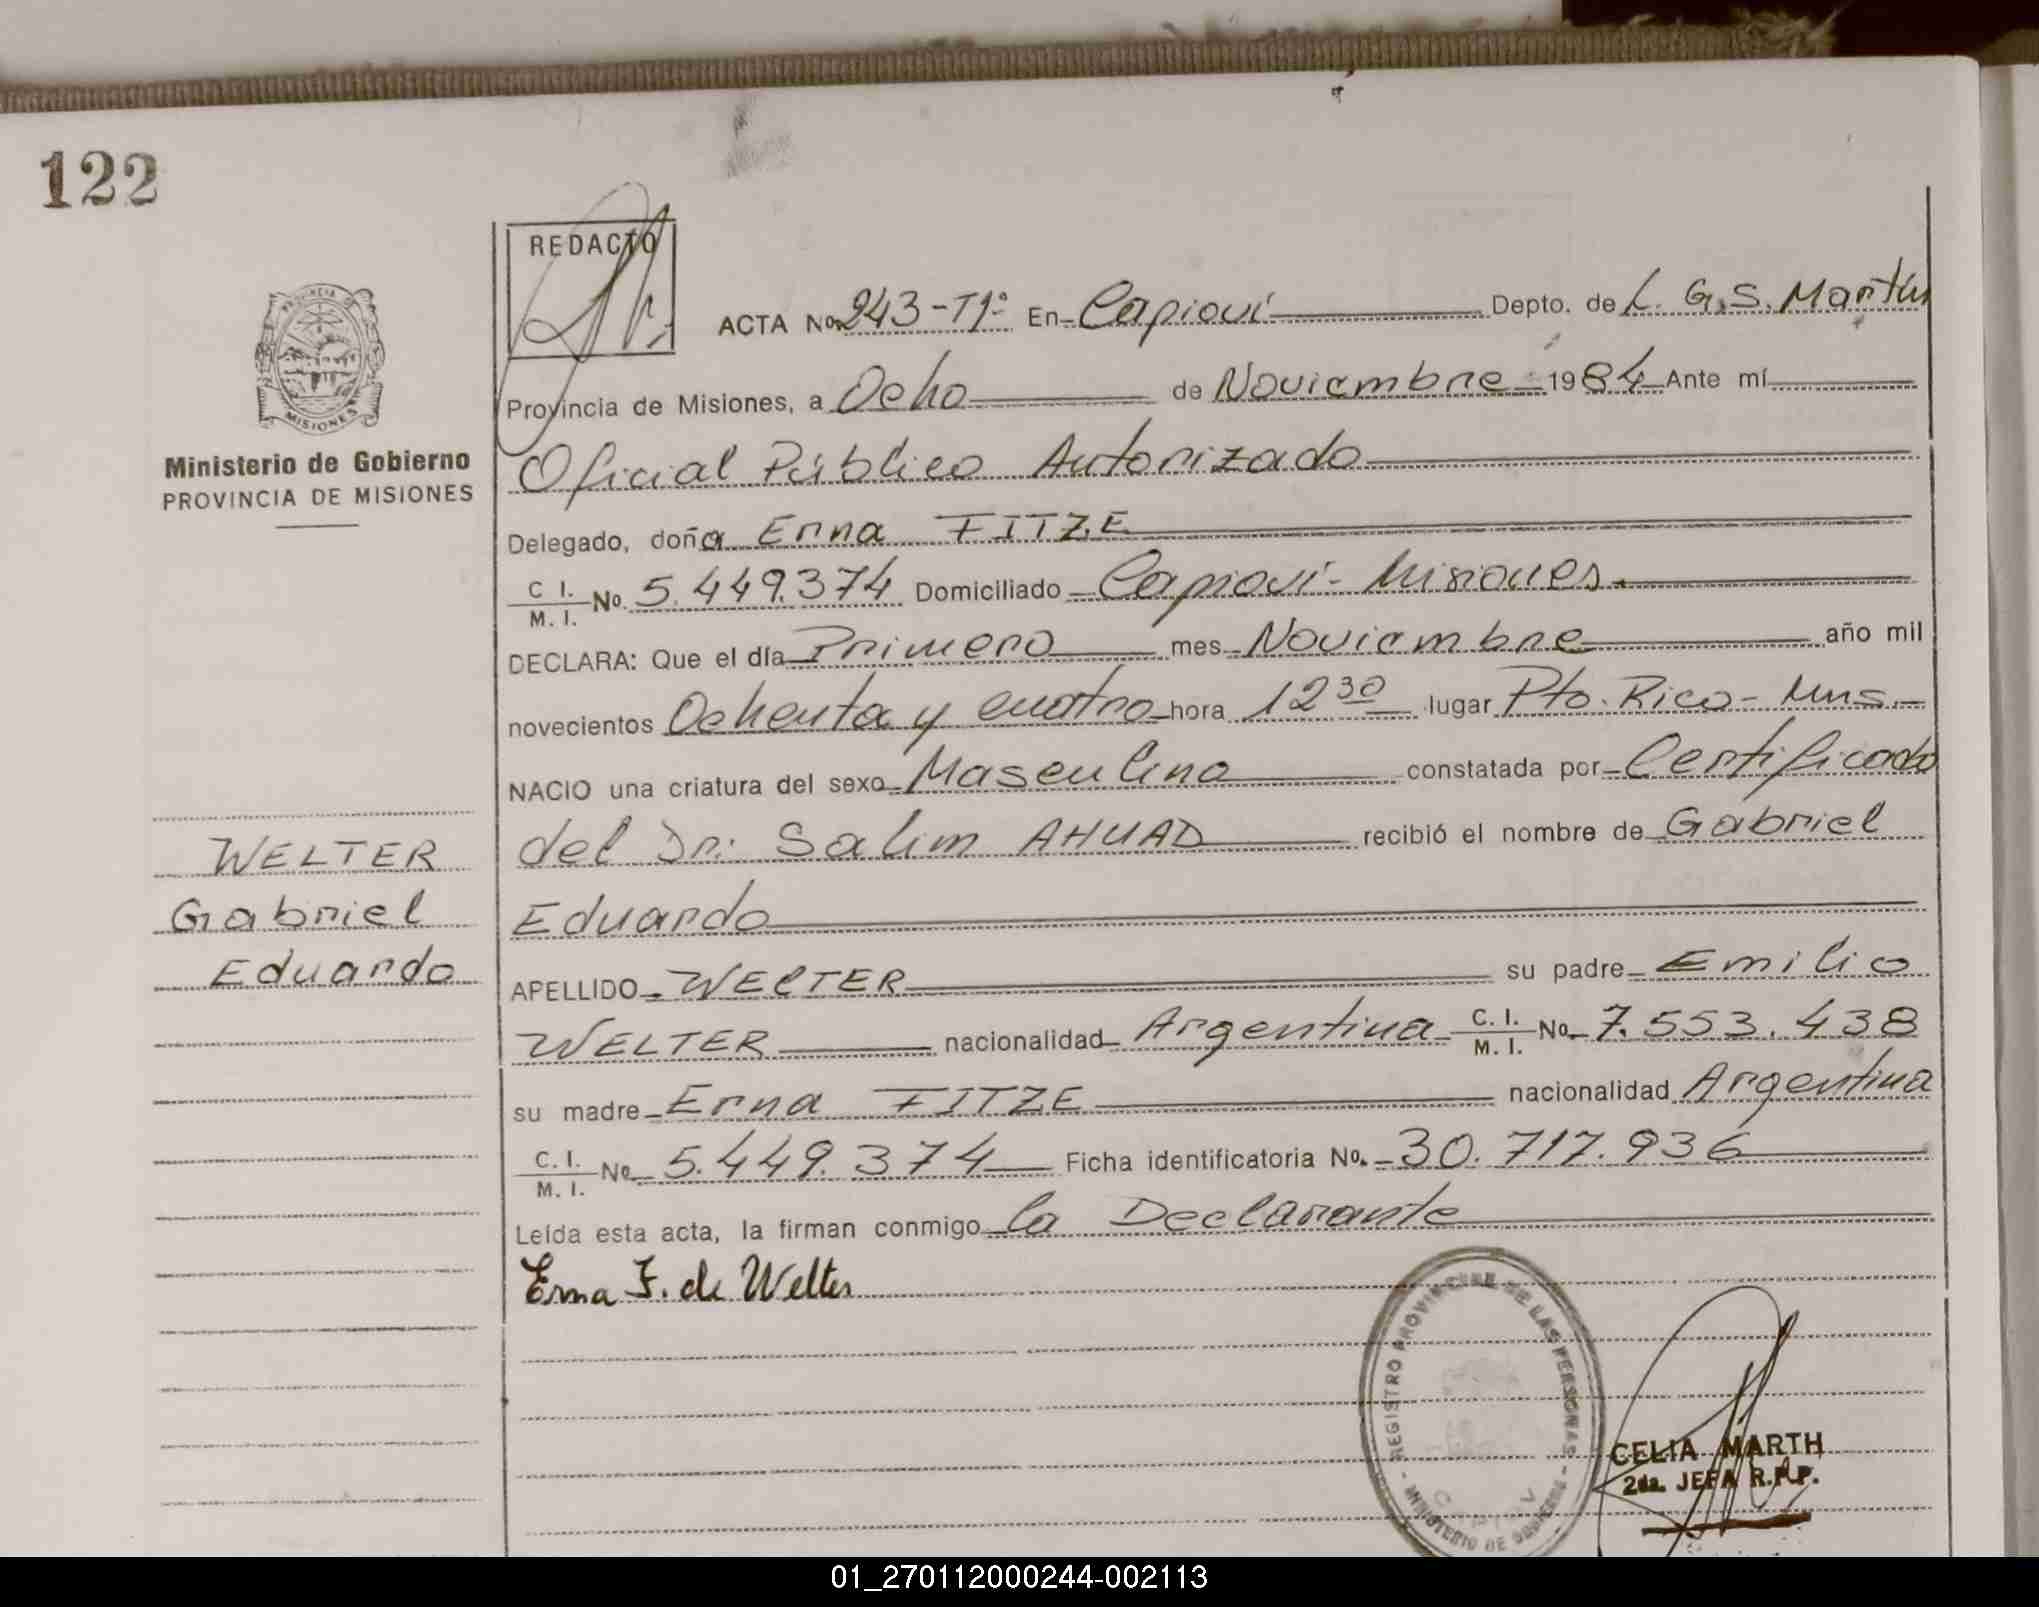 122
REDACTO
ACTA No. 243-T1º En Capioví Depto. de L. G. S. Martín
Provincia de Misiones, a Ocho de Noviembre 1984 Ante mí
Oficial Público Autorizado
Delegado, doña Erna FITZE
C I. M. I. No. 5.449.374 Domiciliado Capioví - Misiones.
DECLARA: Que el día Primero mes Noviembre año mil
novecientos Ochenta y cuatro hora 12 30 lugar Pto. Rico - Mns.
NACIO una criatura del sexo Masculino constatada por Certificado
del Dr. Salim AHUAD recibió el nombre de Gabriel
Eduardo
APELLIDO WELTER su padre Emilio
WELTER nacionalidad Argentina C. I. M. I. No. 7.553.438
su madre Erna FITZE nacionalidad Argentina
C. I. M. I. No. 5.449.374 Ficha identificatoria No. 30.717.936
Leída esta acta, la firman conmigo la Declarante
Erna F. de Welter
PROVINCIA DE
MISIONES
Ministerio de Gobierno
PROVINCIA DE MISIONES
WELTER
Gabriel
Eduardo
REGISTRO PROVINCIAL DE LAS PERSONAS
MINISTERIO DE GOBIERNO
CELIA MARTH
2da. JEFA R.P.P.
01_270112000244-002113